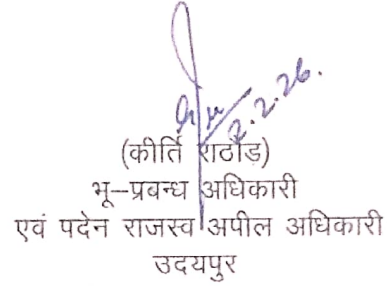 2.2.26.
(कीर्ति राठौड़)
भू–प्रबन्ध अधिकारी
एवं पदेन राजस्व अपील अधिकारी
उदयपुर